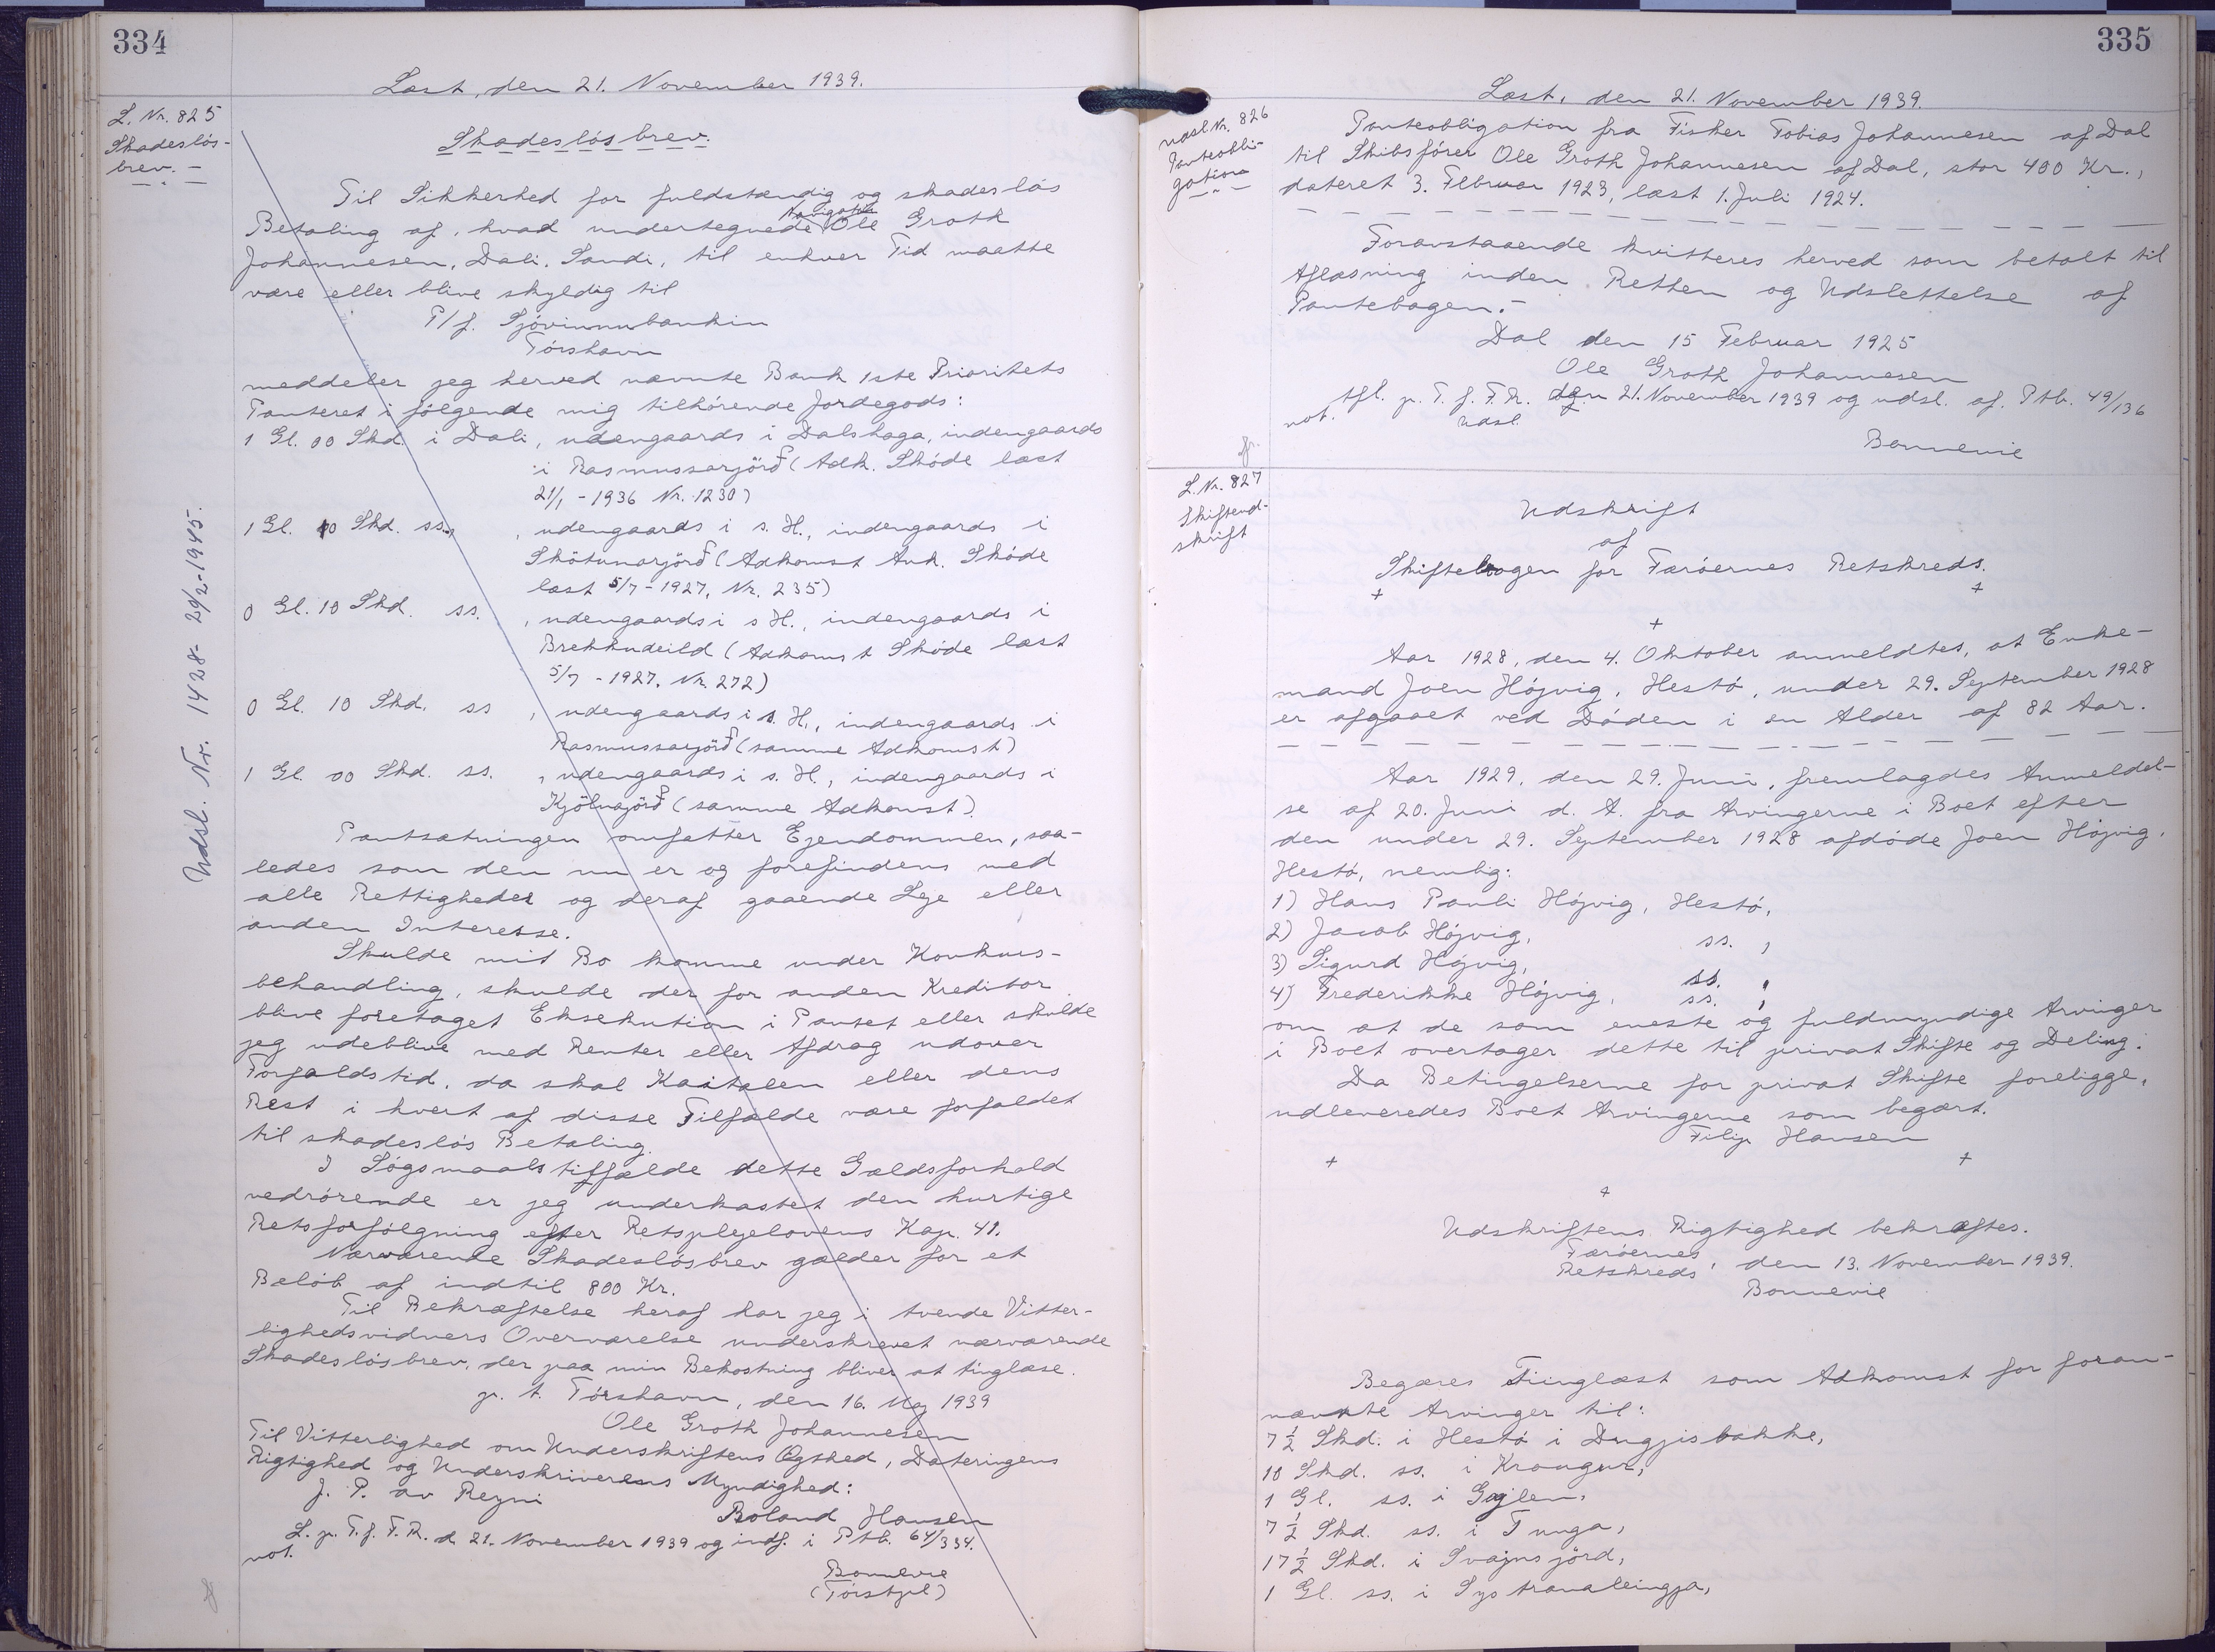 334
Læst, den 21. November 1939.
L. Nr. 825
Skadeslös-
brev.
Skadeslösbrev.
Til Sikkerhed for fuldstændig og skadeslös
Betaling af, hvad undertegnede Navigatör Ole Groth
Johannesen, Dali, Sandi, til enhver Tid maatte
være eller blive skyldig til
P/f. Sjóvinnubankin
Tórshavn
meddeler jeg herved nævnte Bank 1ste Prioritets
Panteret i følgende mig tilhørende Jordegods:
1 Gl. 00 Skd. i Dali, udengaards i Dalshaga, indengaards
i Rasmussarjörð (Adk. Sköde læst
21/1 - 1936 Nr. 1230)
1 Gl. 10 Skd. ss., udengaards i s. H., indengaards i
Skötunarjörð (Adkomst Auk. Sköde
læst 5/7 - 1927, Nr. 235)
0 Gl. 10 Skd. ss., udengaards i s H., indengaards i
Brekkudeild (Adkomst Sköde læst
5/7 - 1927. Nr. 272)
0 Gl. 10 Skd. ss, udengaards i s. H., indengaards i
Rasmussarjörð (samme Adkomst)
1 Gl. 00 Skd. ss., udengaards i s. H., indengaards i
Kjölnajörð (samme Adkomst).
Pantsætningen omfatter Ejendommen, saa-
ledes som den nu er og forefindens med
alle Rettigheder og deraf gaaende Leje eller
anden Interesse.
Skulde mit Bo komme under Konkurs-
behandling, skulde der for anden Kreditor
blive foretaget Eksekution i Pantet eller skulde
jeg udeblive med Renter eller Afdrag udover
Forfaldstid, da skal Kaitalen eller dens
Rest i hvert af disse Tilfælde være forfaldet
til skadeslös Betaling.
I Sögsmaalstilfælde dette Gældsforhold
vedrörende er jeg underkastet den hurtige
Retsforfölgning efter Retsplejelovens Kap. 41.
Nærværende Skadeslösbrev gælder for et
Belöb af indtil 800 Kr.
Til Bekræftelse heraf har jeg i tvende Vitter-
lighedsvidners Overværelse underskrevet nærværende
Skadeslösbrev, der paa min Bekostning bliver at tinglæse.
p. t. Tórshavn, den 16. Maj 1939
Ole Groth Johannesen
Til Vitterlighed om Underskriftens Ægthed, Dateringens
Rigtighed og Underskriverens Myndighed:
J. P. av Reyni
Poland Hansen
L. p. T. f. F. R. d. 21. November 1939 og indf. i Ptb. 64/334.
not.
Bonnevie
(Tórstjul)
Udsl. Nr. 1428- 29/2-1945.
335
Læst, den 21. November 1939.
Udsl Nr. 826
Panteobli-
gation
Panteobligation fra Fisker Tobias Johannesen af Dal
til Skibsförer Ole Groth Johannesen af Dal, stor 400 Kr.,
dateret 3. Februar 1923, læst 1. Juli 1924.
Foranstaaende kvitteres herved som betalt til
Aflæsning inden Retten og Udslettelse af
Pantebogen.-
Dal den 15 Februar 1925
Ole Groth Johannesen
Afl. p. T. f. F. R. den 21. November 1939 og udsl. af. Ptb. 49/136
not. Udsl.
Bonnevie
L. Nr. 827
Skifteud-
skrift
Udskrift
af
Skiftebogen for Færöernes Retskreds.
Aar 1928, den 4. Oktober anmeldtes, at Enke-
mand Joen Höjvig, Hestö, under 29. September 1928
er afgaaet ved Döden i en Alder af 82 Aar.
Aar 1929, den 29. Juni, fremlagdes Anmeldel-
se af 20. Juni d. A. fra Arvingerne i Boet efter
den under 29. September 1928 afdöde Joen Höjvig,
Hestö, nemlig:
1) Hans Pauli Höjvig, Hestö,
2) Jacob Höjvig, ss.,
3) Sigurd Höjvig, ss.,
4) Frederikke Höjvig, ss.,
om at de som eneste og fuldmyndige Arvinger
i Boet overtager dette til privat Skifte og Deling.
Da Betingelserne for privat Skifte foreligge,
udleveredes Boet Arvingerne som begært.
Filip Hansen
Udskriftens Rigtighed bekræftes.
Færöernes
Retskreds, den 13. November 1939.
Bonnevie
Begæres Tinglæst som Adkomst for foran-
nævnte Arvinger til:
7 1/2 Skd. i Hestö i Dugjisbakke,
10 Skd. ss. i Krongur,
1 Gl. ss. i Gøjlen,
7 1/2 Skd. ss. i Tunga,
17 1/2 Skd. i Svajnsjörd,
1 Gl. ss. i Systranaleingja,